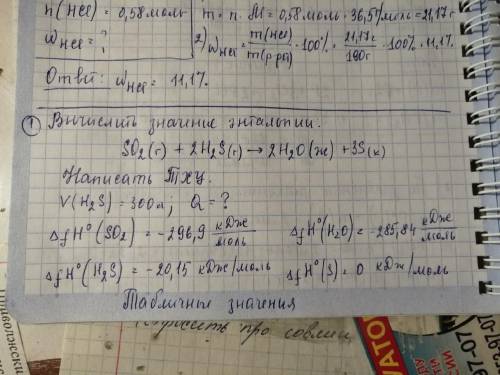 n(HCl) = 0,58 моль
m = n · M = 0,58 моль · 36,5 г/моль = 21,17 г
ω HCl = ?
2) ω HCl = m(HCl)/m(р-ра) · 100% = 21,17 г/190 г · 100% = 11,17.
Ответ: ω HCl = 11,17.
① Вычислить значение энтальпии.
SO₂(г) + 2H₂S(г) → 2H₂O(ж) + 3S(к)
Написать ТХУ.
V(H₂S) = 300 л; Q = ?
ΔfH°(SO₂) = -296,9 кДж/моль ΔfH°(H₂O) = -285,84 кДж/моль
ΔfH°(H₂S) = -20,15 кДж/моль ΔfH°(S) = 0 кДж/моль
Табличные значения
про